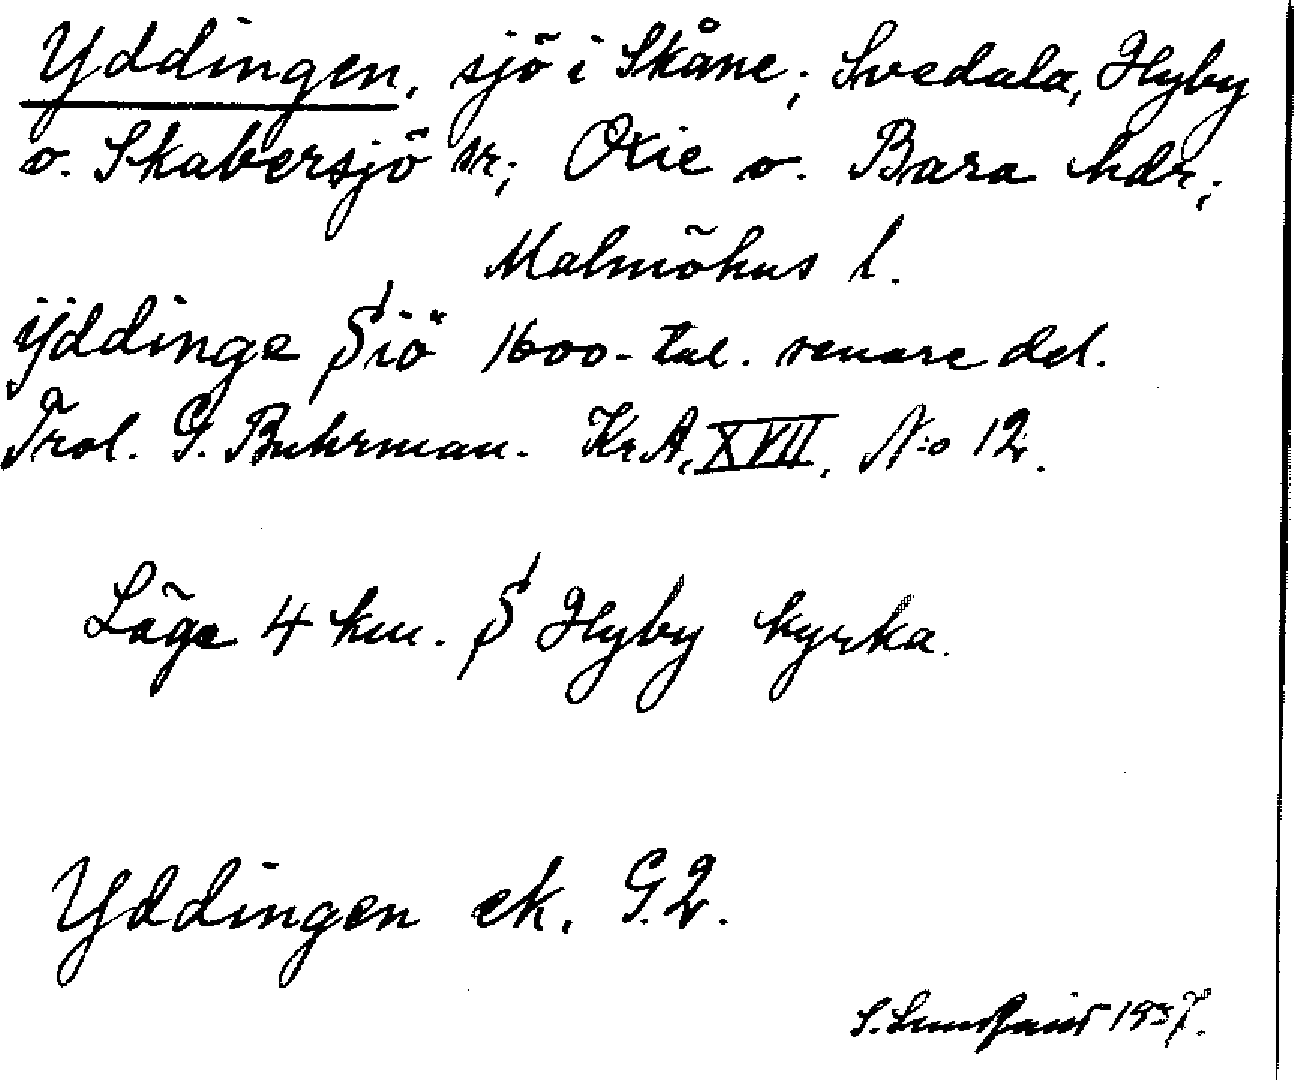 Yddingen, sjö i Skåne; Svedala, Hyby
o. Skabersjö sr; Oxie o. Bara hdr;
Malmöhus l.
Yddinge Siö 1600-tal. senare del.
Trol. G. Buhrman. Kr.A, XVII, N:o 12.
Läge 4 km. S Hyby kyrka.
Yddingen ek. G.2.
S. Lundqvist 1937.